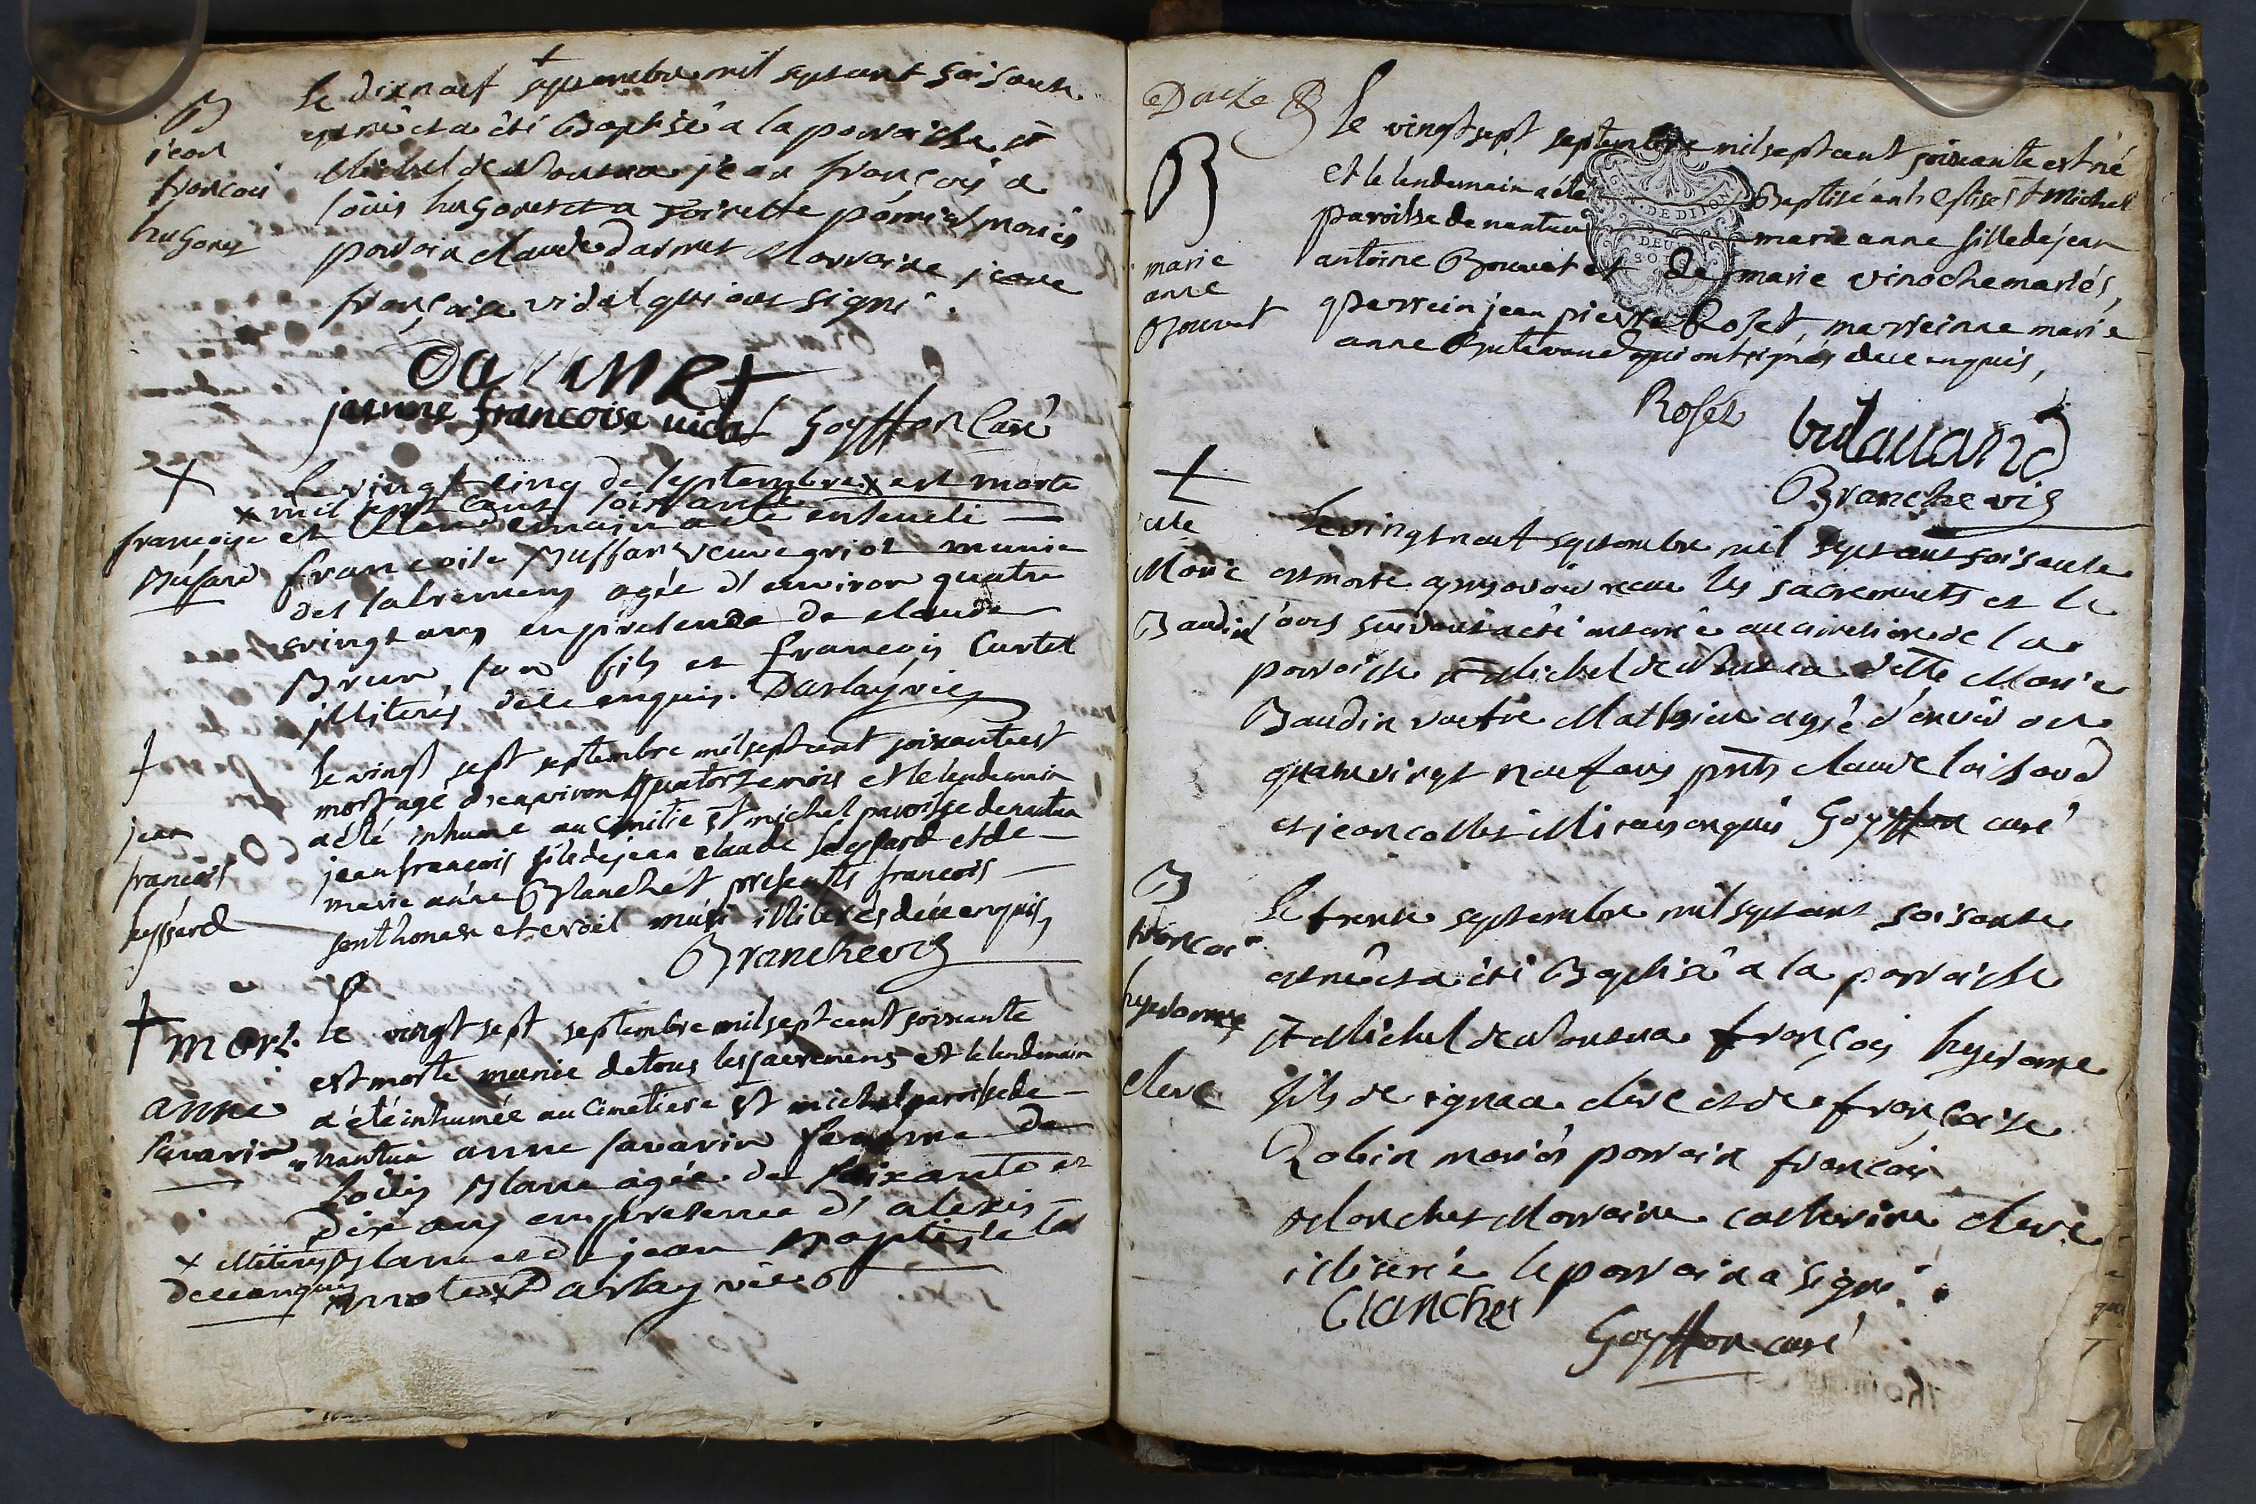 B
jean
francois
hugonet
Le dixneuf septembre mil septcent soisante
est né et a été Baptisé a la parroisse st
Michel de Nantua jean françois a
loüis hugonet et a poirette maries
parrain claude darmet Marraine jeane
françoise vidal qui ont signé
Darmet
jaenne francoise uidal Goyffon Curé
+
francoise
Buffard
le vingt cinq de septembre x est morte
x mil sept cent soixante
et le lendemain a été enseveli
francoise Buffard veuve griot munie
des sacremens agée d'environ quatre
vingt ans en presence de claude
Brun son fils et francois Curtet
illiterés de ce enquis. Darlay vic
+
jean
francois
seyssard
le vingt sept septembre mil sept cent soixante est
mort agé d'enpviron quatorze mois et le lendemain
a été inhumé au cimitie St michel paroisse de nantua
jean francois fils de jean claude seyssard et de
marie anne Blanchet presents francois
santhonax et illiterés de ce enquis,
Branche vic
+
mort
anne
savarin
Le vingt sept septembre mil sept cent soixante
est morte munie de tous les sacremens et le lendemain
a été inhumée au cimetiere St michel paroisse de
nantua anne savarin femme de
Loüis Blanc agée de soixante et
dix ans en presence d'alexis
x illiterés Blanc et de jean Baptiste
de ce enquis x Darlay vic
Dacte
B
marie
anne
Bouvet
Le vingt sept septembre mil sept cent soixante est né
et le lendemain a été Baptisé en l'Eglise st Michel
paroisse de nantua marie anne fille de jean
antoine Bouvet et de marie vinoche mariés,
parrein jean pierre Roset, marreinne marie
anne Butavand qui ont signés de ce enquis,
GEN. DE DIJON
DEUX
SOLS
Roset
butauand
Branche vic
+
Marie
Baudin
Le vingt neuf septembre mil septcent soisante
est morte apres avoir recu les sacrements et le
jours suivant a été enterré au cimetiere de la
parroisse st Michel de Nantua dette Marie
Baudin Mathieu agée d'environ
quatre vingt neuf ans pnts claude loisard
et jean collet illiterés enquis Goyffon curé
B
francois
hyerome
clerc
Le trente septembre mil septcent soisante
est né et a été Baptisé a la parroisse
st Michel de Nantua françois hyerome
fils de ignace clerc et de françoise
Robin mariés parrain francois
Blanchet Marraine catherine clerc
iliterée le parrain a signé.
Clanchet
Goyffon curé